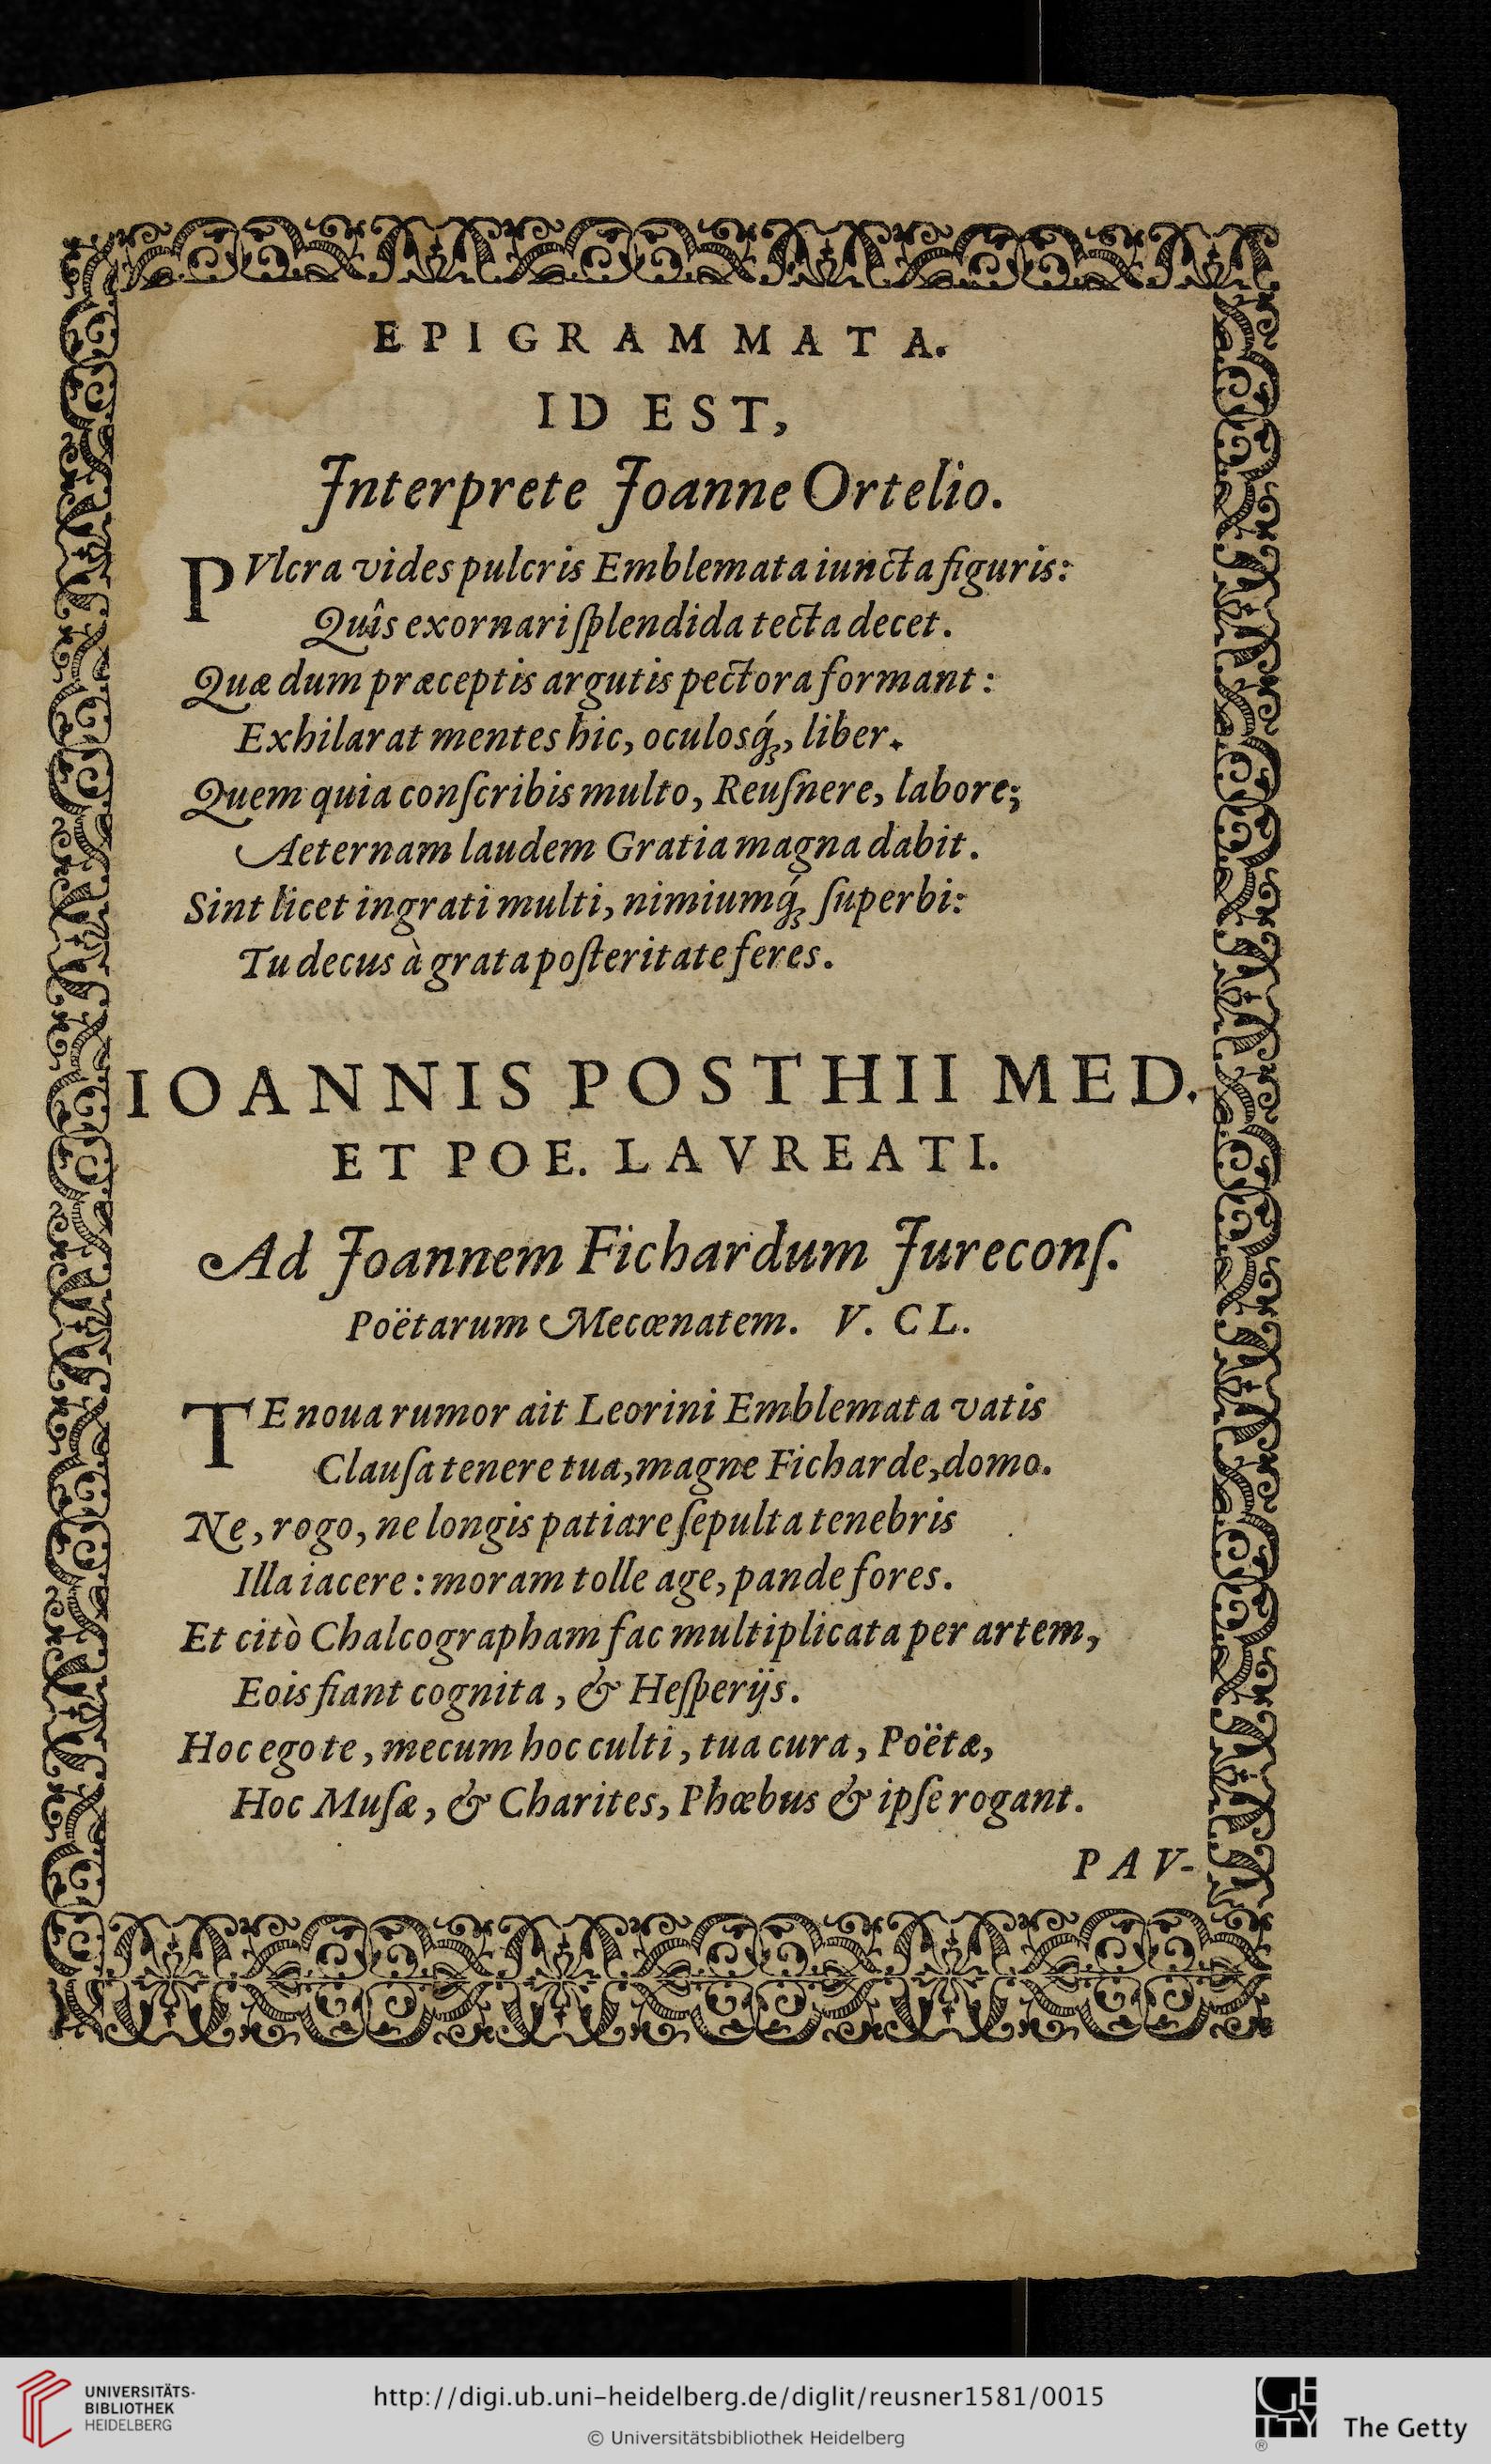 EPIGRAMMATA.
ID EST,
Interprete Joanne Ortelio.
PVlcra vides pulcris Emblemata iuncta figuris:
Quîs exornari ſplendida tecta decet.
Quæ dum præceptis argutis pectora formant:
Exhilarat mentes hic, oculosq́ꝫ, liber.
Quem quia conſcribis multo, Reuſnere, labore;
Aeternam laudem Gratia magna dabit.
Sint licet ingrati multi, nimiumq́ꝫ ſuperbi:
Tu decus à grata poſteritate feres.
IOANNIS POSTHII MED.
ET POE. LAVREATI.
Ad Joannem Fichardum Jureconſ.
Poëtarum Mecœnatem. V. CL.
TE noua rumor ait Leorini Emblemata vatis
Clauſa tenere tua, magne Ficharde, domo.
Ne, rogo, ne longis patiare ſepulta tenebris
Illa iacere: moram tolle age, pande fores.
Et citò Chalcographam fac multiplicata per artem,
Eois fiant cognita, & Heſperijs.
Hoc ego te, mecum hoc culti, tua cura, Poëtæ,
Hoc Muſæ, & Charites, Phœbus & ipſe rogant.
PAV-
UNIVERSITÄTS-
BIBLIOTHEK
HEIDELBERG
http://digi.ub.uni-heidelberg.de/diglit/reusner1581/0015
© Universitätsbibliothek Heidelberg
GETTY
®
The Getty